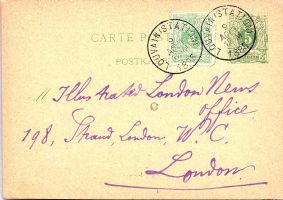 CARTE P
POSTK
LOUVAIN (STATION)
LOUVAIN (STATION)
5
Illustrated London News
Office
198, Strand, London, W. C.
London